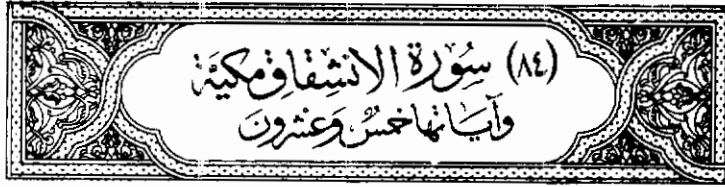 (٨٤) سُورَةُ الانشِقَاقِ مَكيَّة
وَآيَاتُهَا خَمْسٌ وَعِشْرُونَ